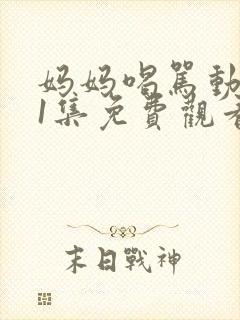 妈妈喝駡動
1集免費觀看
末日戰神